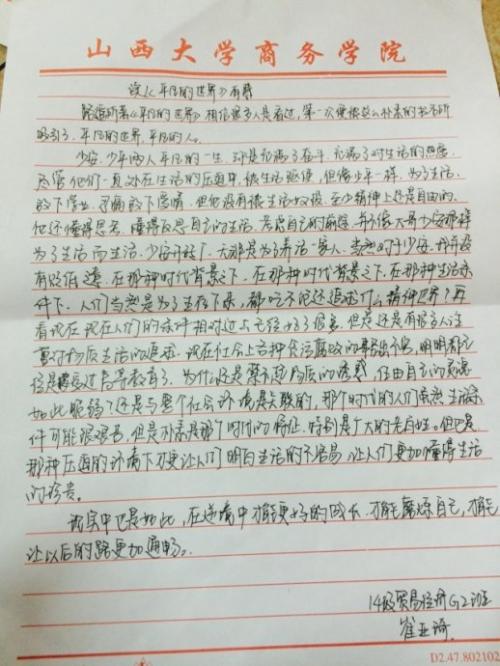 山西大学商务学院
读《平凡的世界》有感
路遥所著《平凡的世界》相信很多人是看过,第一次便被这么朴素的书名所
吸引了,平凡的世界,平凡的人。
少安、少平两人平凡的一生,却是充满了奋斗,充满了对生活的热爱
尽管他们一直处在生活的压迫中,被生活驱使,但像少平一样,为了生活
放下学业,可满放下学情,但他没有被生活奴役,至少精神上还是自由的
他还懂得思考,懂得反思自己的生活,考虑自己的前途,并不像大哥少安那样
为了生活而生活,少安开砖厂,无非是为了养活一家人,当然对于少安,我并没
有贬低之意,在那种时代背景之下,在那种时代背景之下,在那种生活条
件下,人们当然是为了生存下来,都吃不饱还追求什么精神世界?再
看现在,现在人们的条件相对过去已经好了很多,但是还是有很多人注
重对物质生活的追求,现在社会上各种贪污腐败的事层出不穷,明明都已
经是接受过高等教育了,为什么还是禁不住物质的诱惑,任由自己的灵魂
如此脆弱?还是与整个社会环境是关联的,那个时代的人们虽然生活条
件可能很艰苦,但是朴素是那个时代的特征,特别是广大的老百姓。但也是
那种压迫的环境下才更让人们明白生活的不容易,让人们更加懂得生活
的珍贵。
现实中也是如此,在逆境中才能更好的成长,才能磨炼自己,才能
让以后的路更加通畅。
14级贸易经济G2班
崔亚琦
D2.47.802102